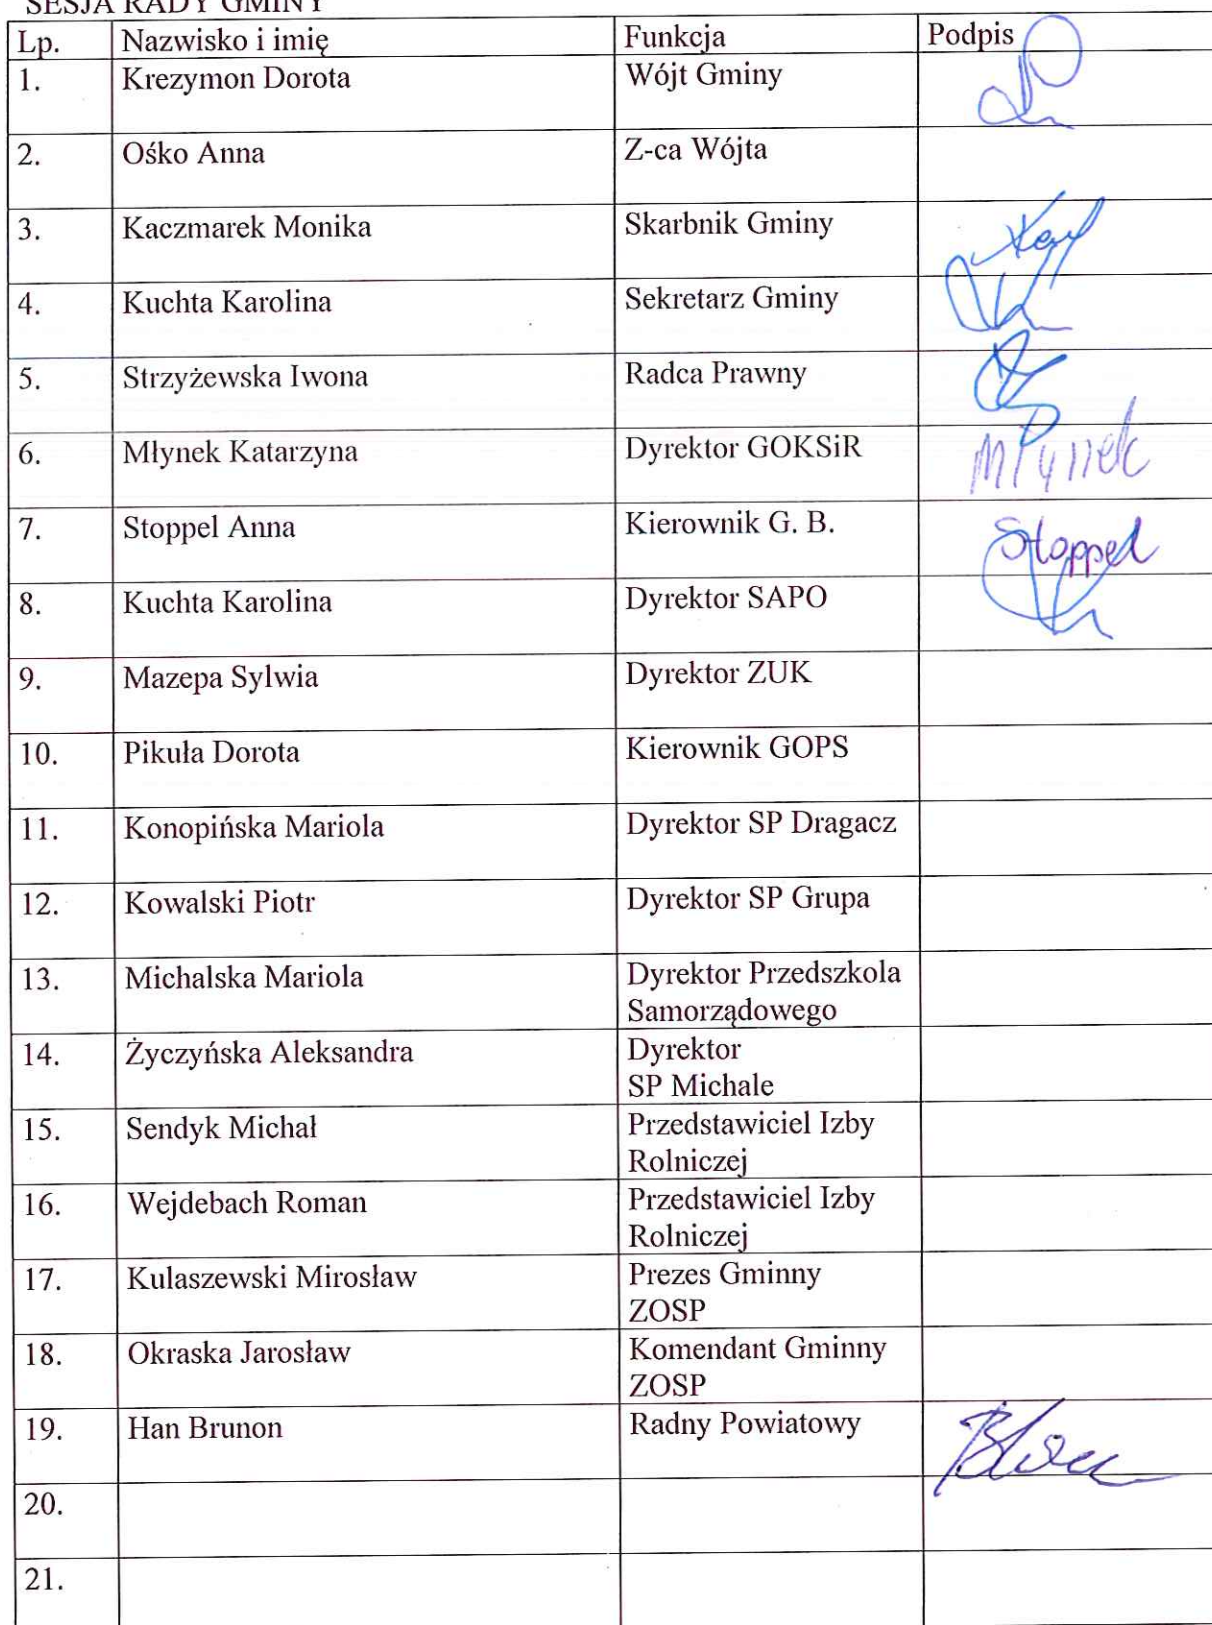 SESJA RADY GMINY
Lp. Nazwisko i imię Funkcja Podpis
1. Krezymon Dorota Wójt Gminy
2. Ośko Anna Z-ca Wójta
3. Kaczmarek Monika Skarbnik Gminy
4. Kuchta Karolina Sekretarz Gminy
5. Strzyżewska Iwona Radca Prawny
6. Młynek Katarzyna Dyrektor GOKSiR Młynek
7. Stoppel Anna Kierownik G. B. Stoppel
8. Kuchta Karolina Dyrektor SAPO
9. Mazepa Sylwia Dyrektor ZUK
10. Pikuła Dorota Kierownik GOPS
11. Konopińska Mariola Dyrektor SP Dragacz
12. Kowalski Piotr Dyrektor SP Grupa
13. Michalska Mariola Dyrektor Przedszkola
Samorządowego
14. Życzyńska Aleksandra Dyrektor
SP Michale
15. Sendyk Michał Przedstawiciel Izby
Rolniczej
16. Wejdebach Roman Przedstawiciel Izby
Rolniczej
17. Kulaszewski Mirosław Prezes Gminny
ZOSP
18. Okraska Jarosław Komendant Gminny
ZOSP
19. Han Brunon Radny Powiatowy
20.
21.